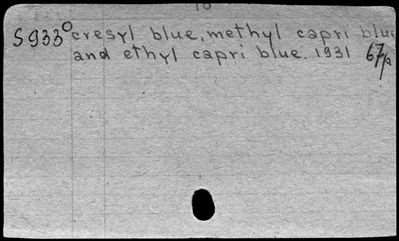 S933° cresyl blue, methyl capri blue
and ethyl capri blue. 1931